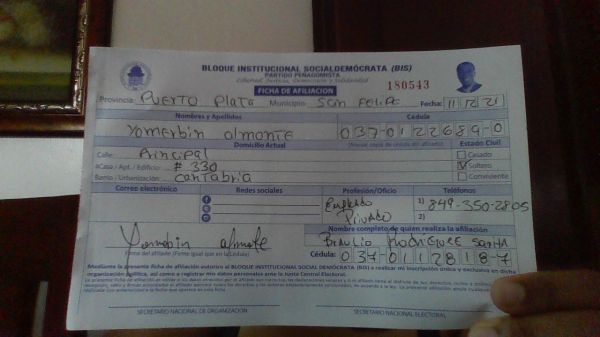 BLOQUE INSTITUCIONAL SOCIALDEMÓCRATA (BIS)
PARTIDO PEÑAGOMISTA
Libertad, Justicia, Democracia y Solidaridad
FICHA DE AFILIACIÓN
180543
Provincia: PUERTO PLATA Municipio: San Felipe Fecha: 11/12/21
Nombres y Apellidos Cédula
Yomerbin almonte 037-0122689-0
Domicilio Actual Estado Civil
Calle: Principal Casado
#Casa / Apt. / Edificio: # 330 Soltero
Barrio / Urbanización: Cantabria Conviviente
Correo electrónico Redes sociales Profesión/Oficio Teléfonos
Empleado 1) 849-350-2805
Privado 2)
Nombre completo de quien realiza la afiliación
Yomerbin almonte BRAULIO RODRIGUEZ
Firma del afiliado (Firme igual que en la Cédula) Cédula: 037-0112818-7
Mediante la presente ficha de afiliación autorizo al BLOQUE INSTITUCIONAL SOCIALDEMÓCRATA (BIS) a realizar mi inscripción única y exclusiva en dicha
organización política, así como a registrar mis datos personales ante la Junta Central Electoral.
SECRETARIO NACIONAL DE ORGANIZACIÓN SECRETARIO NACIONAL ELECTORAL